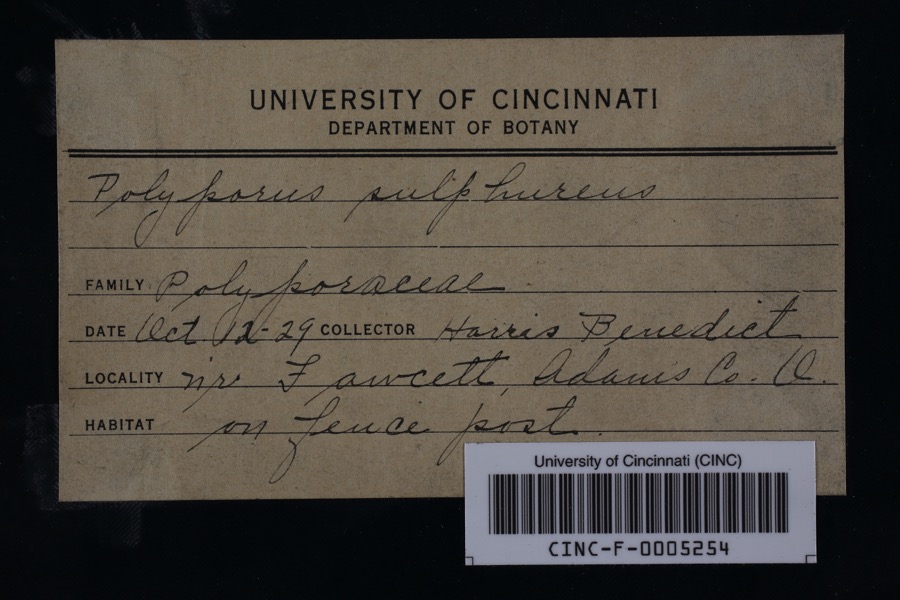 UNIVERSITY OF CINCINNATI
DEPARTMENT OF BOTANY
Polyporus sulphureus
FAMILY Polyporaceae
DATE Oct 12-29 COLLECTOR Harris Benedict
LOCALITY nr Fawcett, Adams Co. O.
HABITAT on fence post.
University of Cincinnati (CINC)
CINC-F-0005254